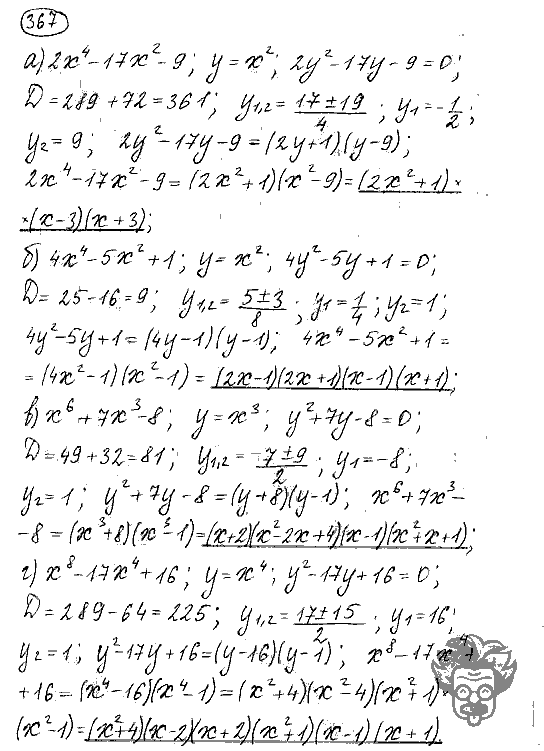 367
а) 2x⁴-17x²-9; y=x²; 2y²-17y-9=0;
D=289+72=361; y₁,₂=(17±19)/4; y₁=-1/2;
y₂=9; 2y²-17y-9=(2y+1)(y-9);
2x⁴-17x²-9=(2x²+1)(x²-9)=(2x²+1)×
×(x-3)(x+3);
б) 4x⁴-5x²+1; y=x²; 4y²-5y+1=0;
D=25-16=9; y₁,₂=(5±3)/8; y₁=1/4; y₂=1;
4y²-5y+1=(4y-1)(y-1); 4x⁴-5x²+1=
=(4x²-1)(x²-1)=(2x-1)(2x+1)(x-1)(x+1);
в) x⁶+7x³-8; y=x³; y²+7y-8=0;
D=49+32=81; y₁,₂=(-7±9)/2; y₁=-8;
y₂=1; y²+7y-8=(y+8)(y-1); x⁶+7x³-
-8=(x³+8)(x³-1)=(x+2)(x²-2x+4)(x-1)(x²+x+1);
г) x⁸-17x⁴+16; y=x⁴; y²-17y+16=0;
D=289-64=225; y₁,₂=(17±15)/2; y₁=16;
y₂=1; y²-17y+16=(y-16)(y-1); x⁸-17x⁴+
+16=(x⁴-16)(x⁴-1)=(x²+4)(x²-4)(x²+1)·
(x²-1)=(x²+4)(x-2)(x+2)(x²+1)(x-1)(x+1).